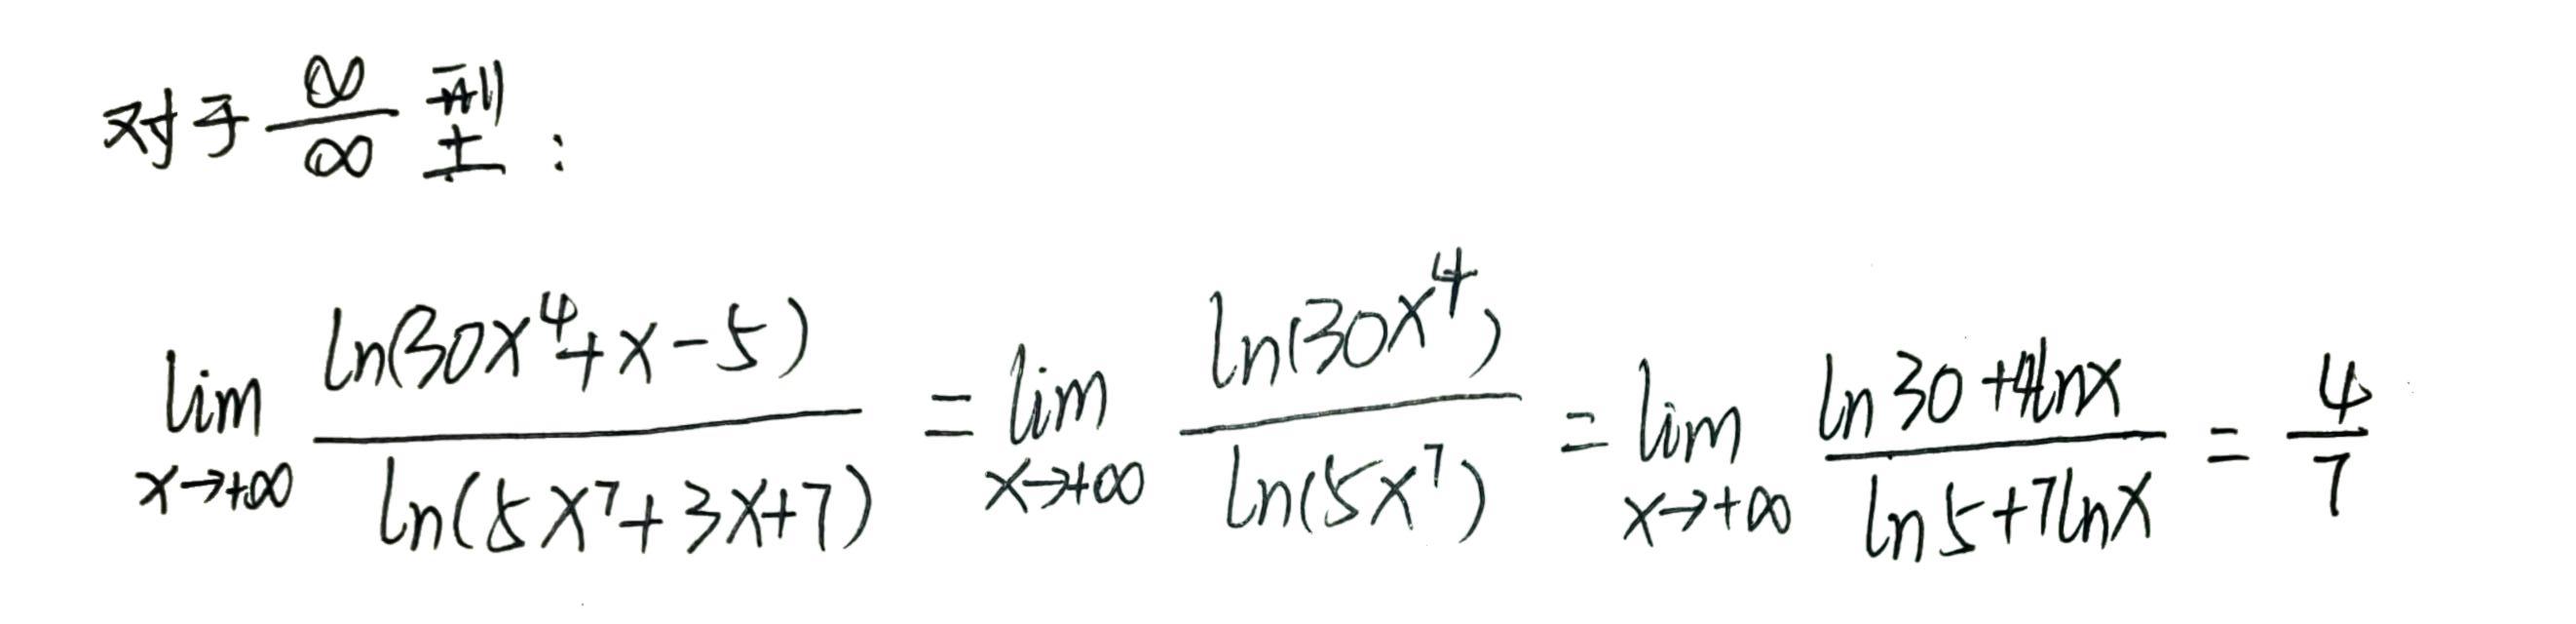 对于 ∞/∞ 型：
lim_{x→+∞} ln(30x^4+x-5)/ln(5x^7+3x+7) = lim_{x→+∞} ln(30x^4)/ln(5x^7) = lim_{x→+∞} (ln30+4lnx)/(ln5+7lnx) = 4/7